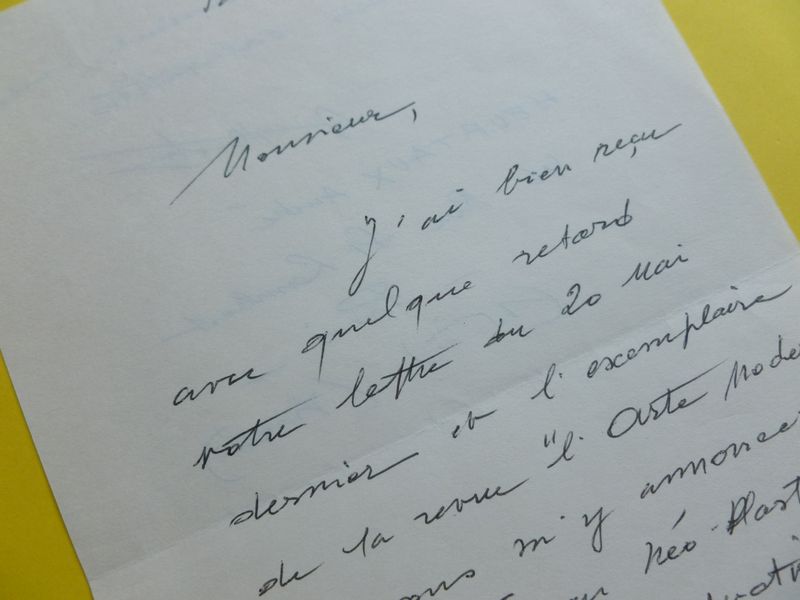 Monsieur,
J'ai bien reçu
avec quelque retard
votre lettre du 20 Mai
dernier et l'exemplaire
de la revue "l'Arte Mode
ous m'y annoncez
Néo-Plast